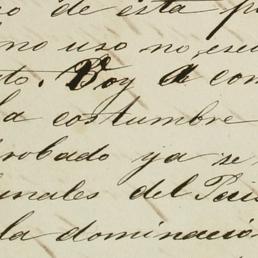 o de esta p
no uso no es
to. Voy á con
la costumbre
robado ya se
unales del Pais
la dominació